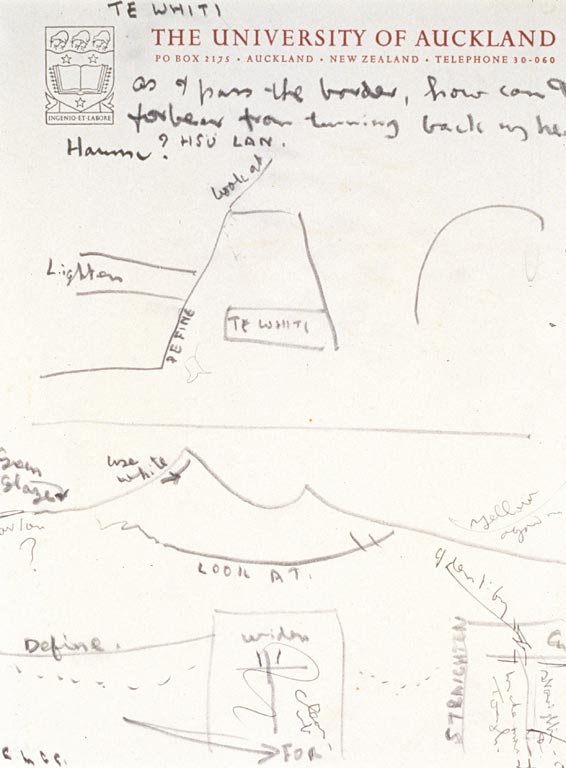 TE WHITI
THE UNIVERSITY OF AUCKLAND
PO BOX 2175 • AUCKLAND • NEW ZEALAND • TELEPHONE 30-060
INGENIO·ET·LABORE
as I pass the border, how can I
forbear from turning back my
? HSÜ LAN.
Look at
Lighten
DEFINE
TE WHITI
use
white
glazes
?
yellow
again
LOOK AT.
identify
Define.
widen
STRAIGHTEN
FOR